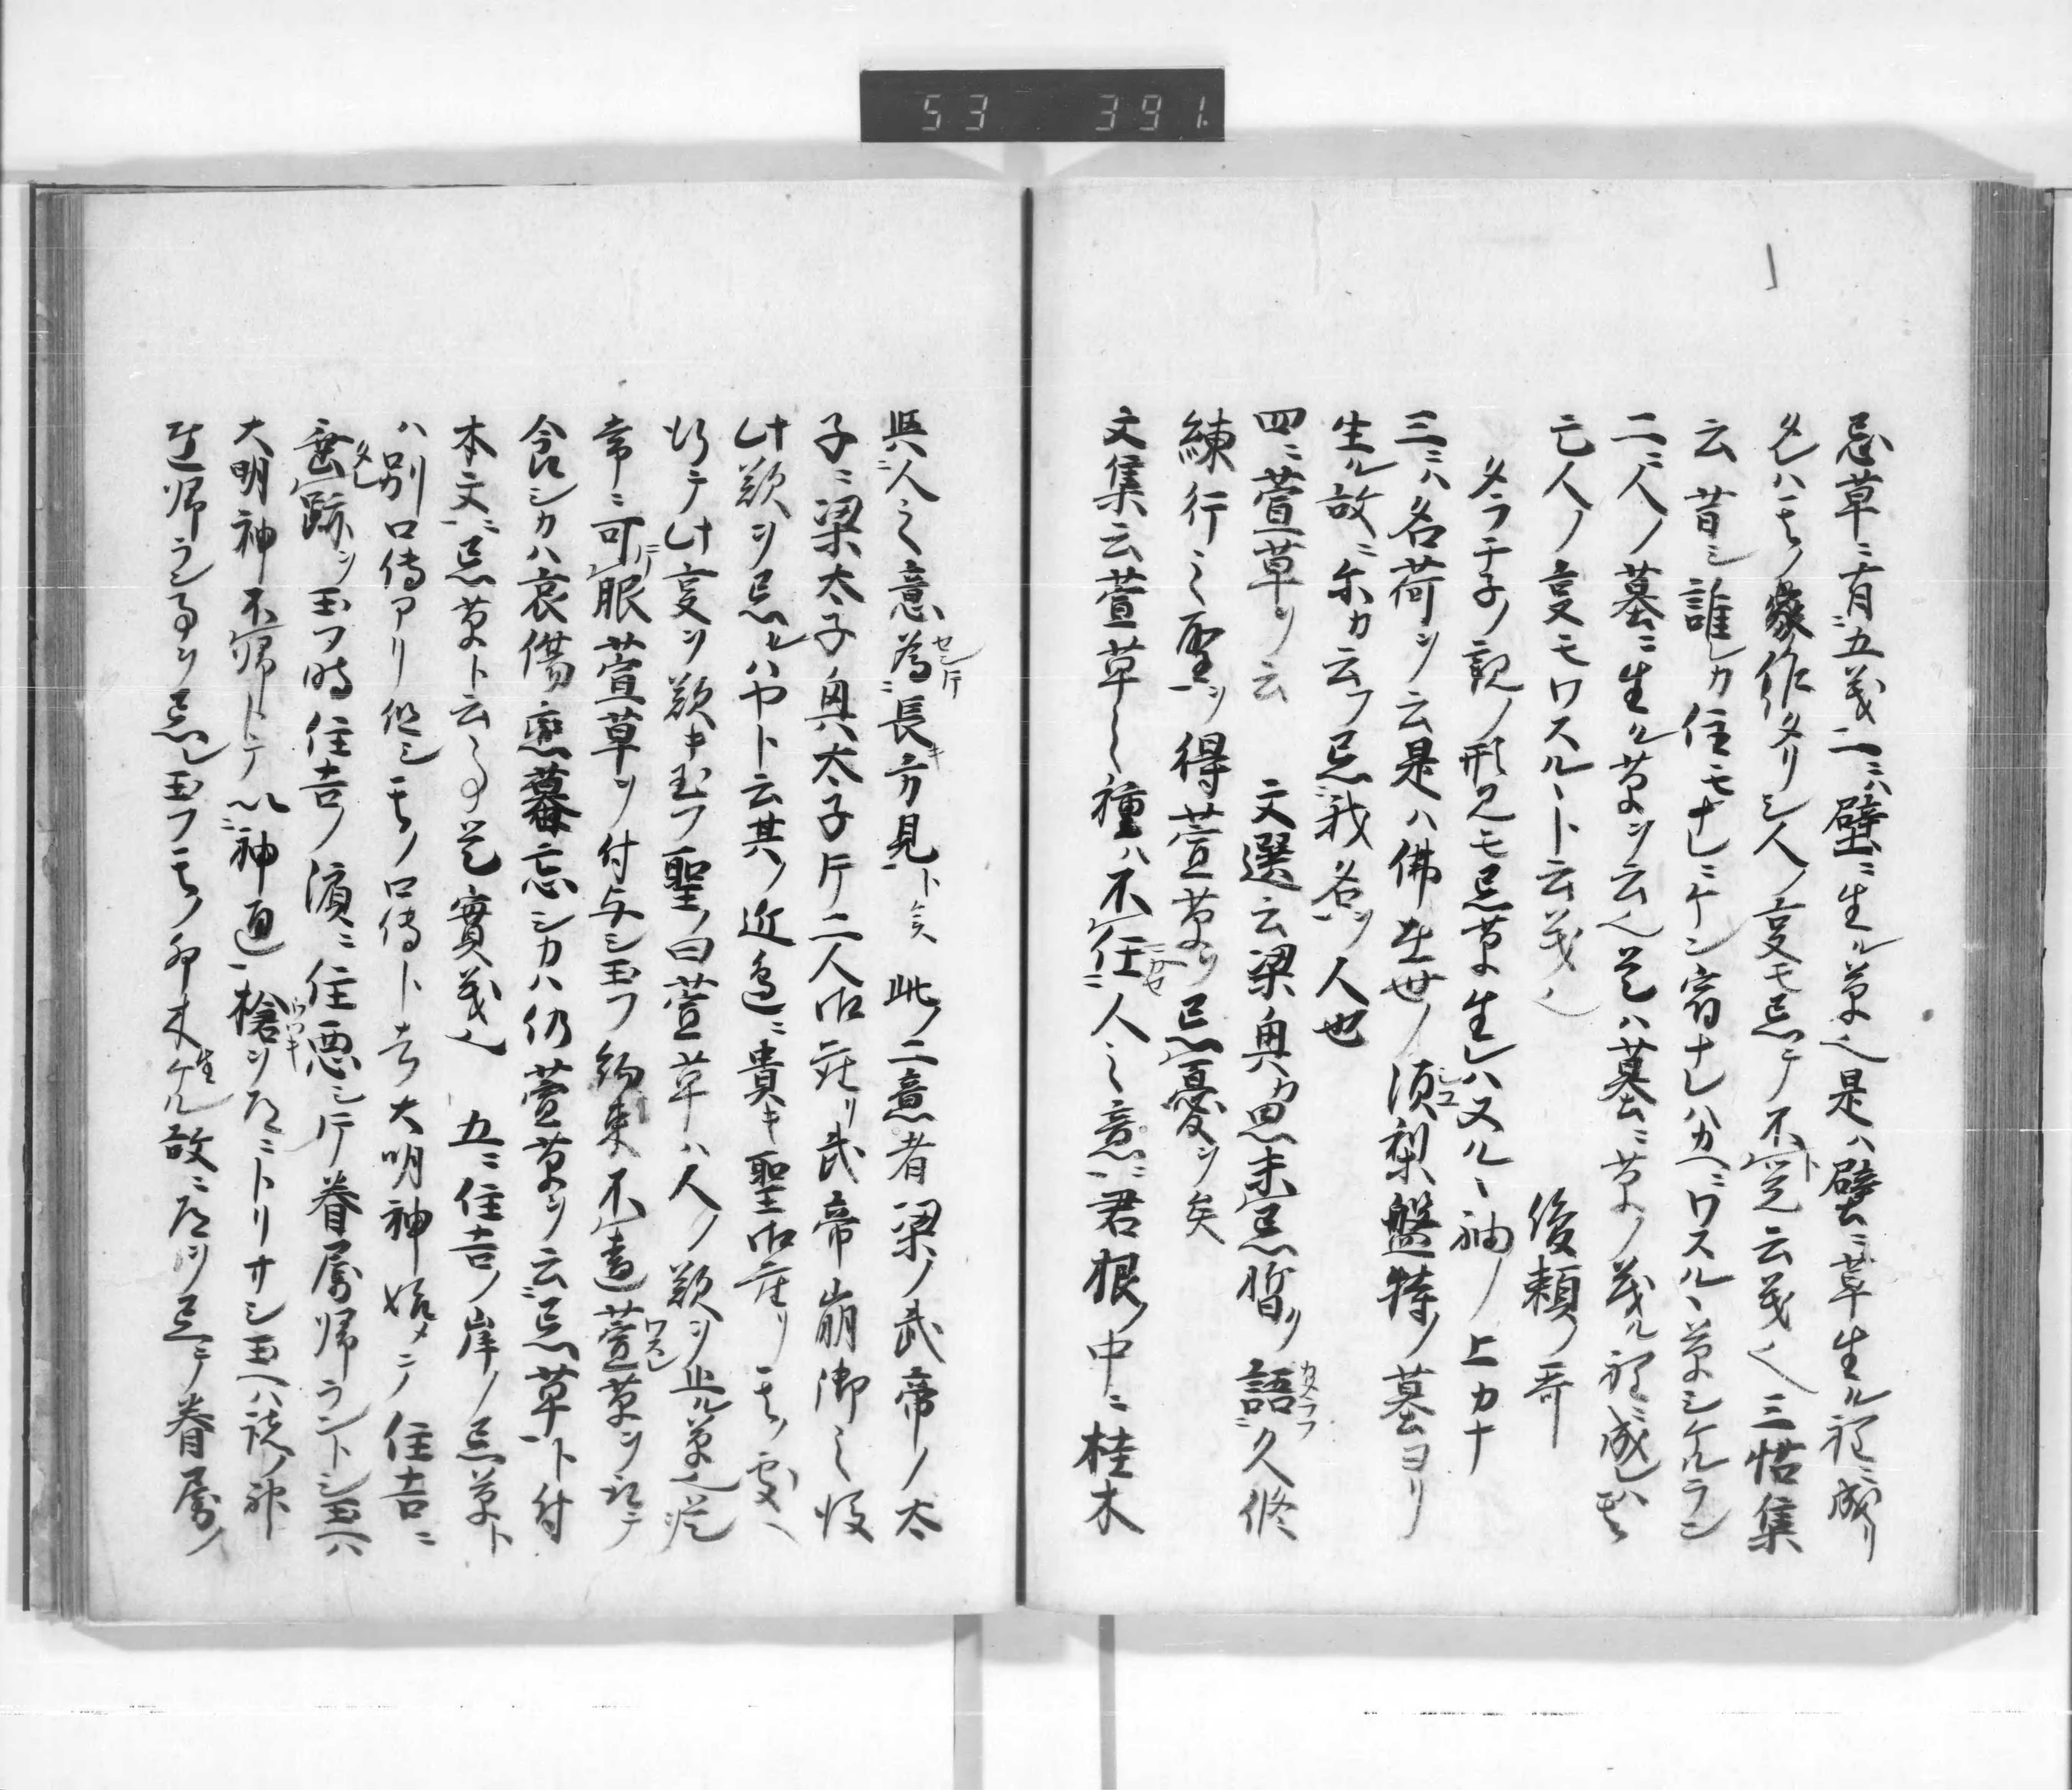 53 391
忘草ニ有五義一ニハ壁ニ生ル草也是ハ壁ニ草生ル程ニ成リ
タレハ其ノ家作タリシ人ノ事モ忘テ不覚ト云義也三悟集
云昔シ誰レカ住モナレニケン宿ナレハカヘニワスルヽ草シケルラン
二ニ人ノ墓ニ生ル草ヲ云也是ハ墓ニ草ノ茂ル程ニ成レハ其
亡人ノ事モワスルヽト云義也 俊頼ノ哥
タラチ子ノ親ノ形見モ忘草生レハヌルヽ袖ノ上カナ
三ニハ名荷ヲ云是ハ佛在世ノ須梨盤特ノ墓ヨリ
生ル故ニ尓カ云フ忘我名ヲ人也
四ニ萱草ヲ云 文選云梁奥カ思未忘昏ヲ語カタラフニ久修
練行之聖ヲ得萱草ヲ忘憂ヲ矣
文集云萱草之種ハ不任人之意ニ君根ノ中ニ桂木
與人之意為長方見ト矣 此ノ二意者梁ノ武帝ノ太
子ニ梁太子奥太子斤二人御座リ武帝崩御之後
此歎ヲ忘ルハヤト云其ノ近邊ニ貴キ聖御座リ其ノ處ヘ
行テ此事ヲ歎キ玉フ聖ノ曰萱草ハ人ノ歎ヲ止ル草也
常ニ可眼萱草ヲ付与シ玉フ約束不違萱草ヲ
食シカハ哀傷戀暮忘シカハ仍萱草ヲ云忘草ト付
本文ニ忘草ト云事是實義也 五ニ住吉ノ岸ノ忘草ト
ハ別口傳アリ但シ其ノ口傳ト者大明神始メテ住吉ニ
垂跡シ玉フ時住吉ノ濱ニ住悪シ斤眷属帰ラントシ玉ヘハ
大明神不帰トテ以神通槍ヲ道ニトリサシ玉ヘハ諸ノ神
達帰ラン事ヲ忘レ玉フ其ノ卯木生ケル故ニ道ヲ忘テ眷属ノ